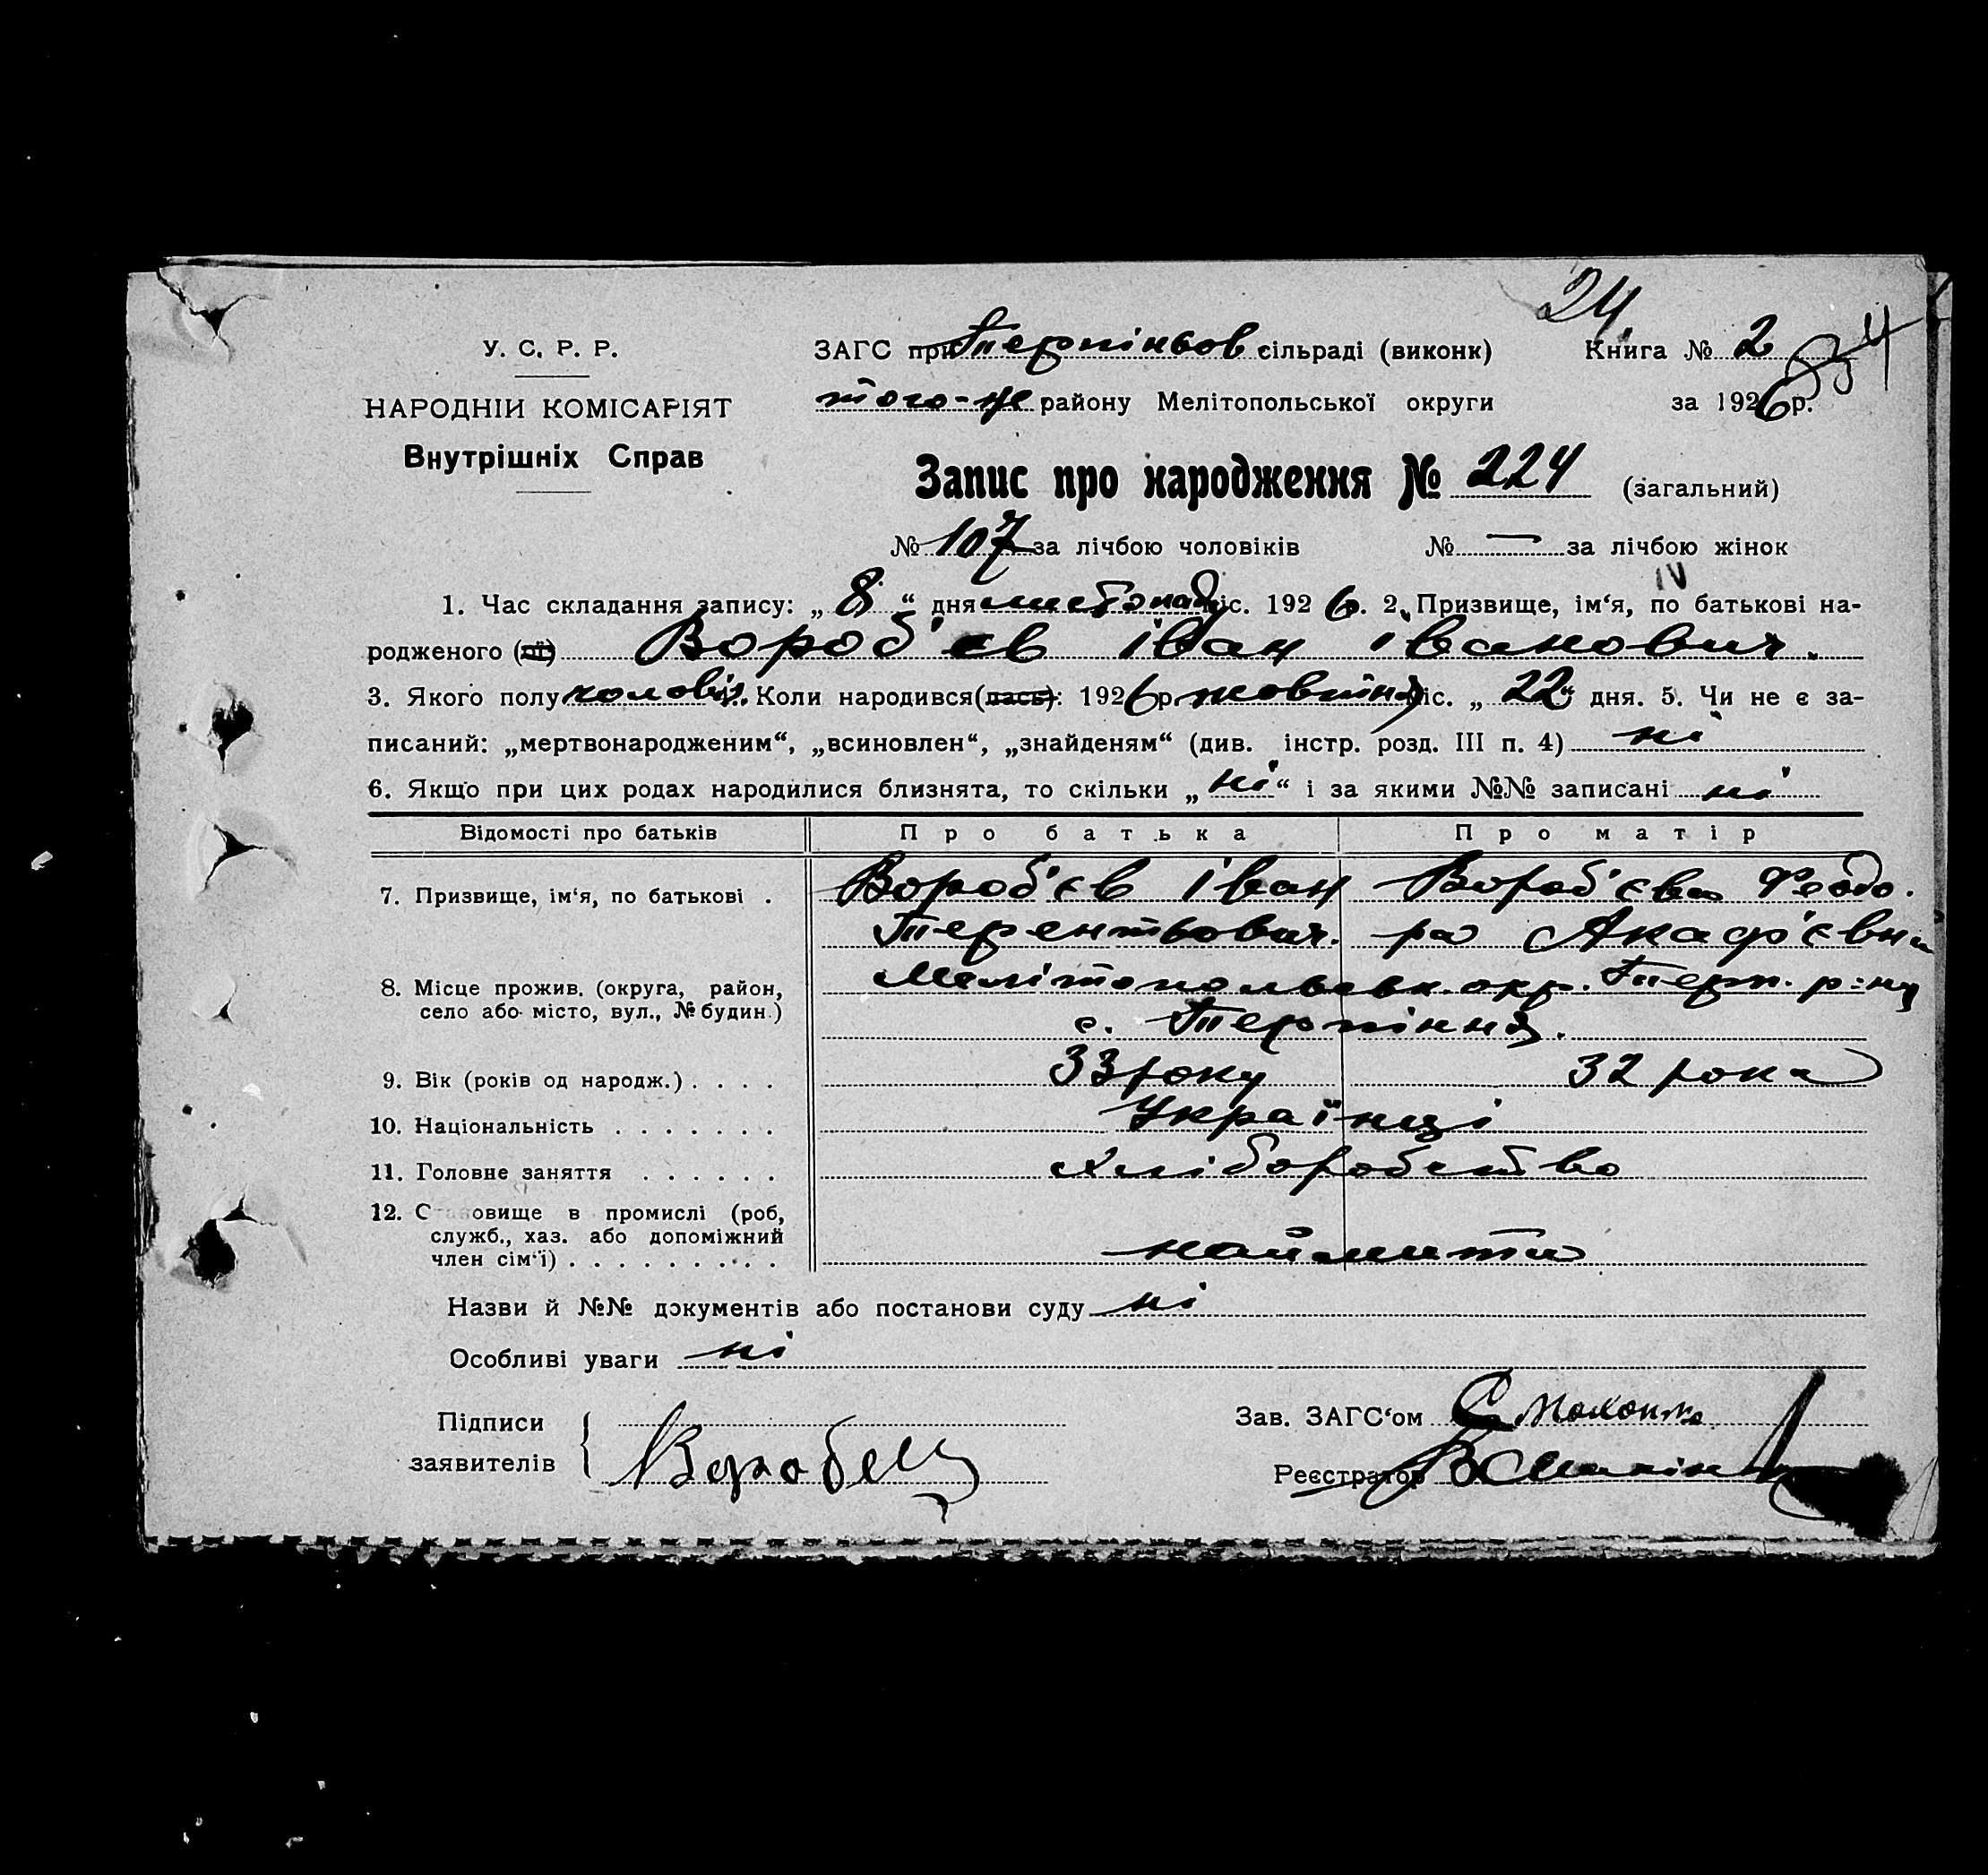 24
У. С. Р. Р.
ЗАГС при Терпіньов сільраді (виконк)
Книга № 2
НАРОДНІЙ КОМІСАРІЯТ
того-же району Мелітопольської округи
за 1926 р.
Внутрішніх Справ
Запис про народження № 224 (загальний)
№ 107 за лічбою чоловіків № — за лічбою жінок
IV
1. Час складання запису: „ 8 “ дня листопаду міс. 1926. 2. Призвище, ім‘я, по батькові на-
родженого (ої) Вороб'єв Іван Іванович.
3. Якого полу чоловіч. Коли народився(лась): 1926 р. жовтня міс. „ 22 “ дня. 5. Чи не є за-
писаний: „мертвонародженим“, „всиновлен“, „знайденям“ (див. інстр. розд. III п. 4) ні
6. Якщо при цих родах народилися близнята, то скільки „ ні “ і за якими №№ записані ні
Відомості про батьків Про батька Про матір
7. Призвище, ім‘я, по батькові . Вороб'єв Іван Вороб'єва Феодо.
Терентьович. ра Акаф'євна
8. Місце прожив. (округа, район, Мелітопольськ. окр. Терп. р-ну
село або місто, вул., № будин.) с. Терпіння.
9. Вік (років од народж.) . . . . 33 року 32 рока
10. Національність . . . . . . . Українці
11. Головне заняття . . . . . . Хліборобство
12. Становище в промислі (роб,
служб., хаз. або допоміжний
член сім‘ї) . . . . . . . . . наймити
Назви й №№ документів або постанови суду ні
Особливі уваги ні
Підписи
Зав. ЗАГС‘ом
заявителів
Реєстратор